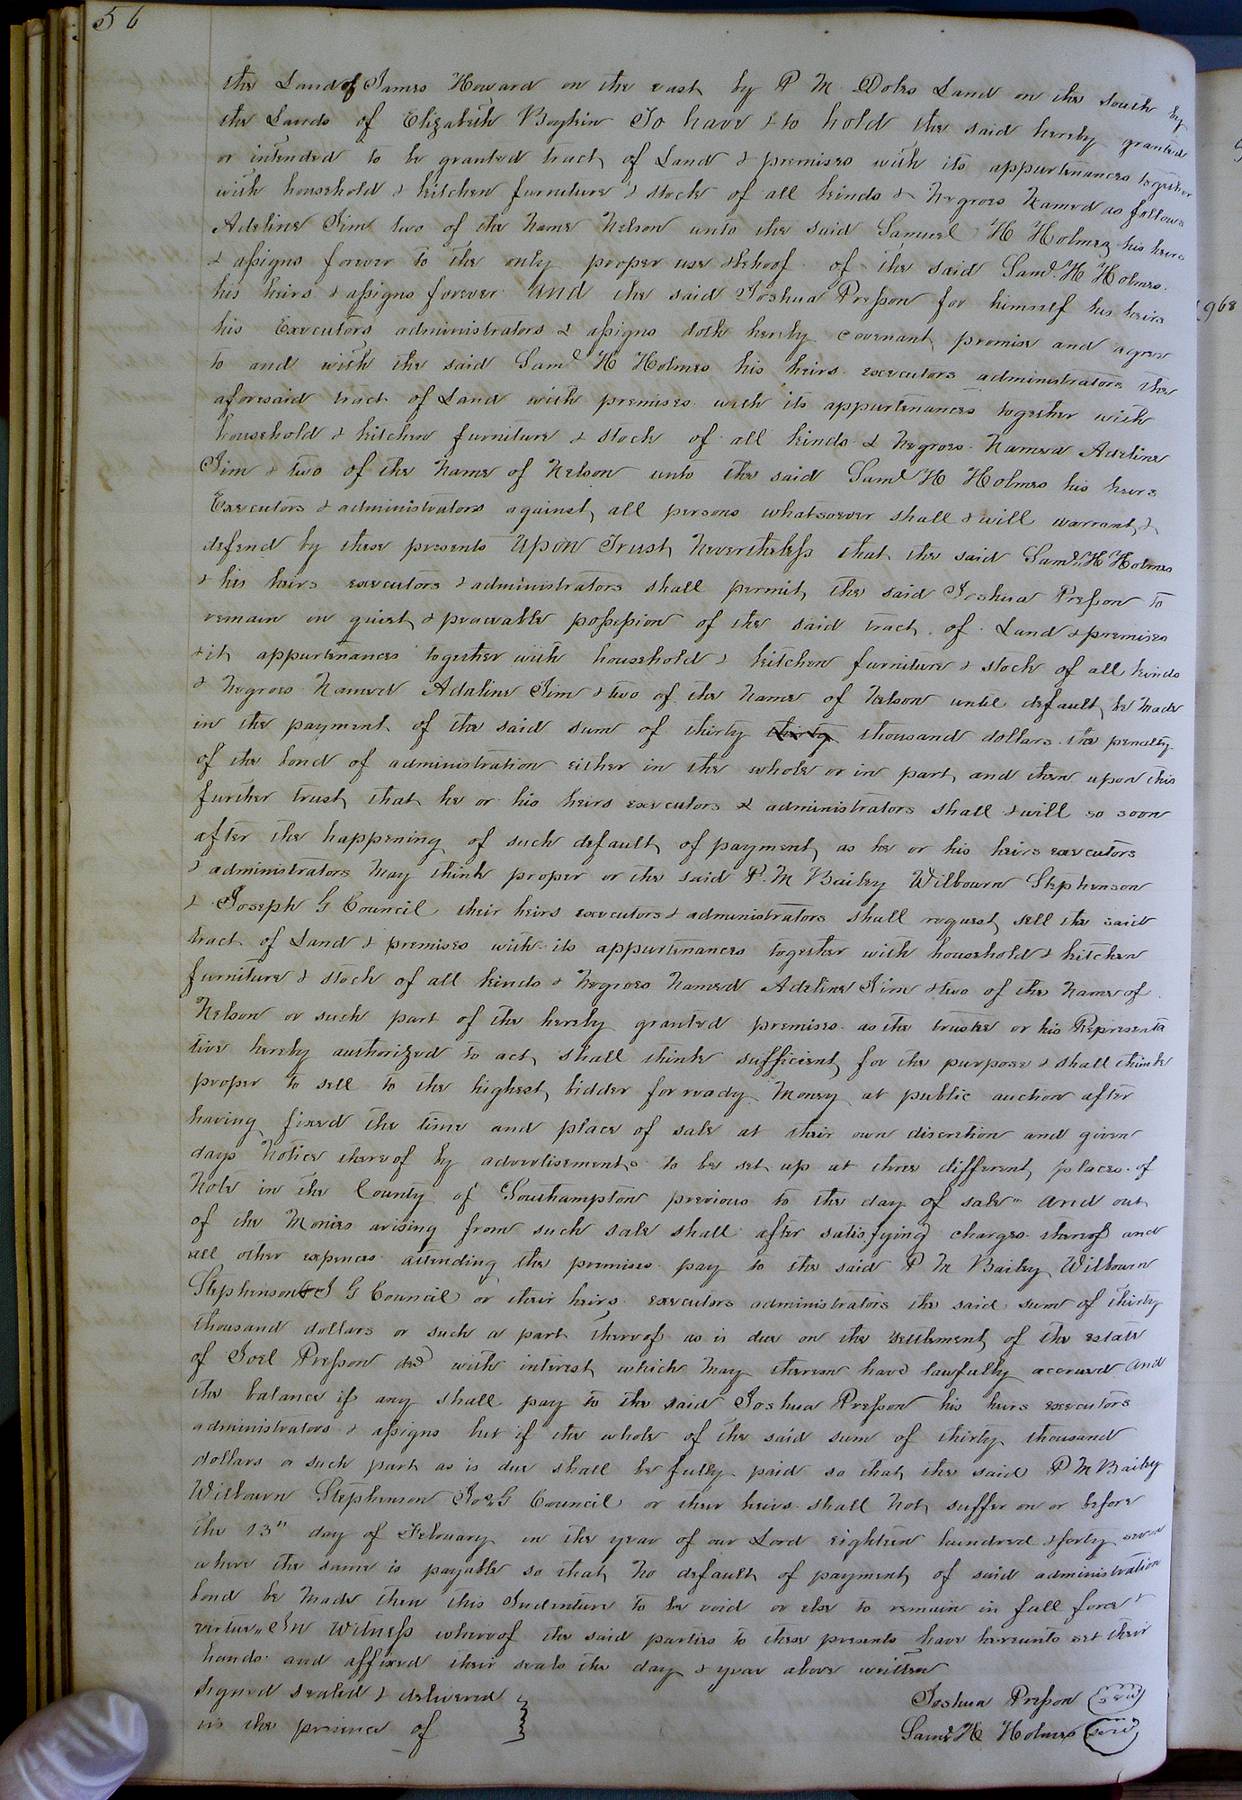 56
the Land of James Howard on the east by P M Doles Land on the south by
the Lands of Elizabeth Boykin To have & to hold the said hereby granted
or intended to be granted tract of Land & premises with its appurtenances together
with household & kitchen furniture & stock of all kinds & Negroes Named as follows
Adeline Jim two of the Name Nelson unto the said Samuel H Holmes his heirs
& assigns forever to the only proper use & behoof of the said Saml H Holmes
his heirs & assigns forever and the said Joshua Presson for himself his heirs
his Executors administrators & assigns doth hereby covenant promise and agree
to and with the said Saml H Holmes his heirs executors administrators the
aforesaid tract of Land with premises with its appurtenances together with
household & kitchen furniture & stock of all kinds & Negroes Named Adeline
Jim & two of the Name of Nelson unto the said Saml H Holmes his heirs
Executors & administrators against all persons whatsoever shall & will warrant &
defend by these presents Upon Trust Nevertheless that the said Saml H Holmes
& his heirs executors & administrators shall permit the said Joshua Presson to
remain in quiet & peaceable possession of the said tract of Land & premises
& it appurtenances together with household & kitchen furniture & stock of all kinds
& Negroes Named Adaline Jim & two of the Name of Nelson until default be made
in the payment of the said sum of thirty thirty thousand dollars the penalty
of the bond of administration either in the whole or in part and then upon this
further trust that he or his heirs executors & administrators shall & will so soon
after the happening of such default of payment as he or his heirs executors
& administrators May think proper or the said P. M Bailey Wilbourn Stephenson
& Joseph G Council their heirs executors & administrators shall request sell the said
tract of Land & premises with its appurtenances together with household & kitchen
furniture & stock of all kinds & Negroes Named Adeline Jim & two of the Name of
Nelson or such part of the hereby granted premises as the trustee or his Representa
tive hereby authorized to act shall think sufficient for the purpose & shall think
proper to sell to the highest bidder for ready Money at public auction after
having fixed the time and place of sale at their own discretion and given
days Notice thereof by advertisements to be set up at three different places of
Note in the County of Southampton previous to the day of sale " and out
of the Monies arising from such sale shall after satisfying charges thereof and
all other expences attending the premises pay to the said P M Bailey Wilbourn
Stephenson & J G Council or their heirs executors administrators the said sum of thirty
thousand dollars or such a part thereof as is due on the settlment of the estate
of Joel Presson decd with interest which May thereon have lawfully accrued and
the balance if any shall pay to the said Joshua Presson his heirs executors
administrators & assigns but if the whole of the said sum of thirty thousand
dollars or such part as is due shall be fully paid so that the said P M Bailey
Wilbourn Stephenson Jos G Council or their heirs shall Not suffer on or before
the 13" day of February in the year of our Lord eighteen hundred & forty
where the same is payable so that No default of payment of said administration
bond be Made then this Indenture to be void or else to remain in full force &
virtue " In Witness whereof the said parties to these presents have hereunto set their
hands and affixed their seals the day & year above written
Signed sealed & delivered
in the presence of
Joshua Presson seal
Saml H Holmes seal
968